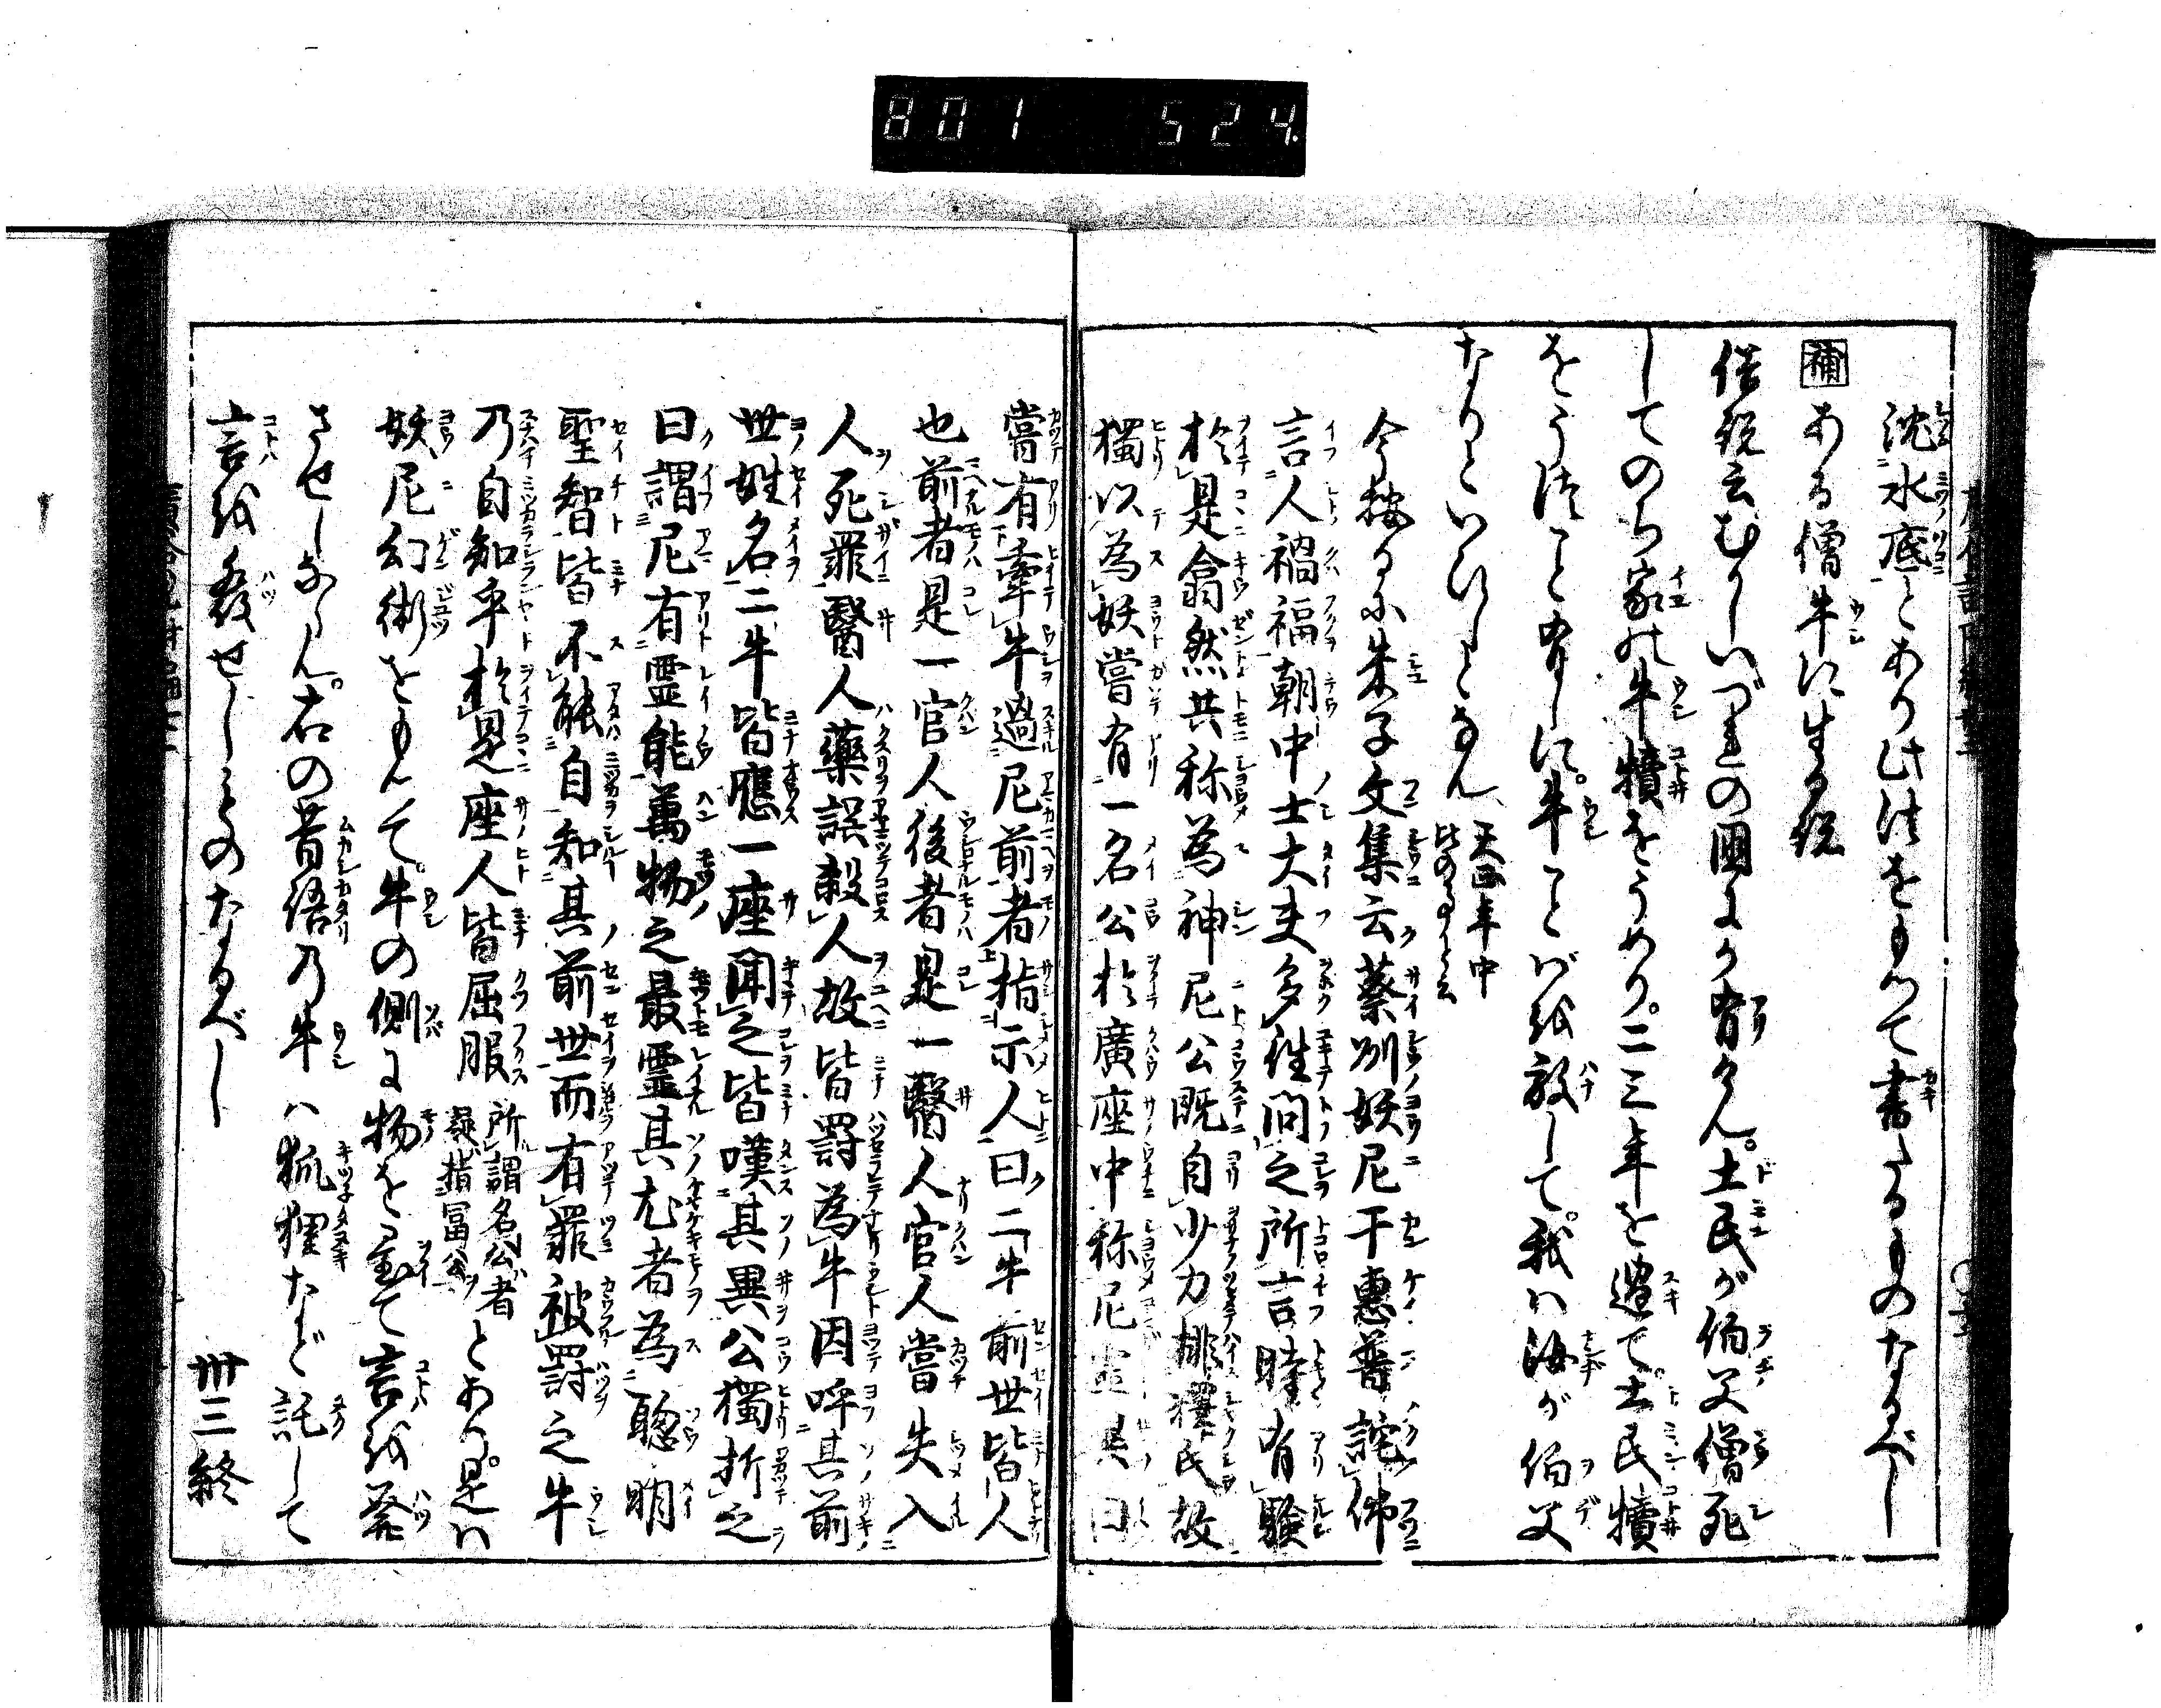 801 524
沈水底とあり此法をもつて書たるものなるべし
補 ある僧牛に生る説
俗説云むかしいづれの国にか有けん。土民が伯父僧死
してのち家の牛犢をうめり。二三年を過て。土民犢
をうつこと有しに。牛ことばを放して。我は汝が伯父
なりといひしとなん 天正年中
此の事と云
今按るに朱子文集云蔡州妖尼于惠普詫佛
言人禍福朝中士大夫多往問之所言時有験
於是翕然共称為神尼公既自少力排釋氏故
獨以為妖嘗有一名公於廣座中称尼霊異曰
嘗有牽牛過尼前者指示人曰二牛前世皆人
也前者是一官人後者是一醫人官人嘗失入
人死罪醫人藥誤殺人故皆罰為牛因呼其前
世姓名二牛皆應一座聞之皆嘆其異公獨折之
曰謂尼有霊能萬物之最霊其尤者為聡明
聖智皆不能自知其前世而有罪被罰之牛
乃自知乎於是座人皆屈服 所謂名公者
疑指冨公 とあり。是は
妖尼幻術をもんて。牛の側に物を置て言を発
させしならん。右の昔語乃牛は狐狸など託して
言を發せしものなるべし
卅三終